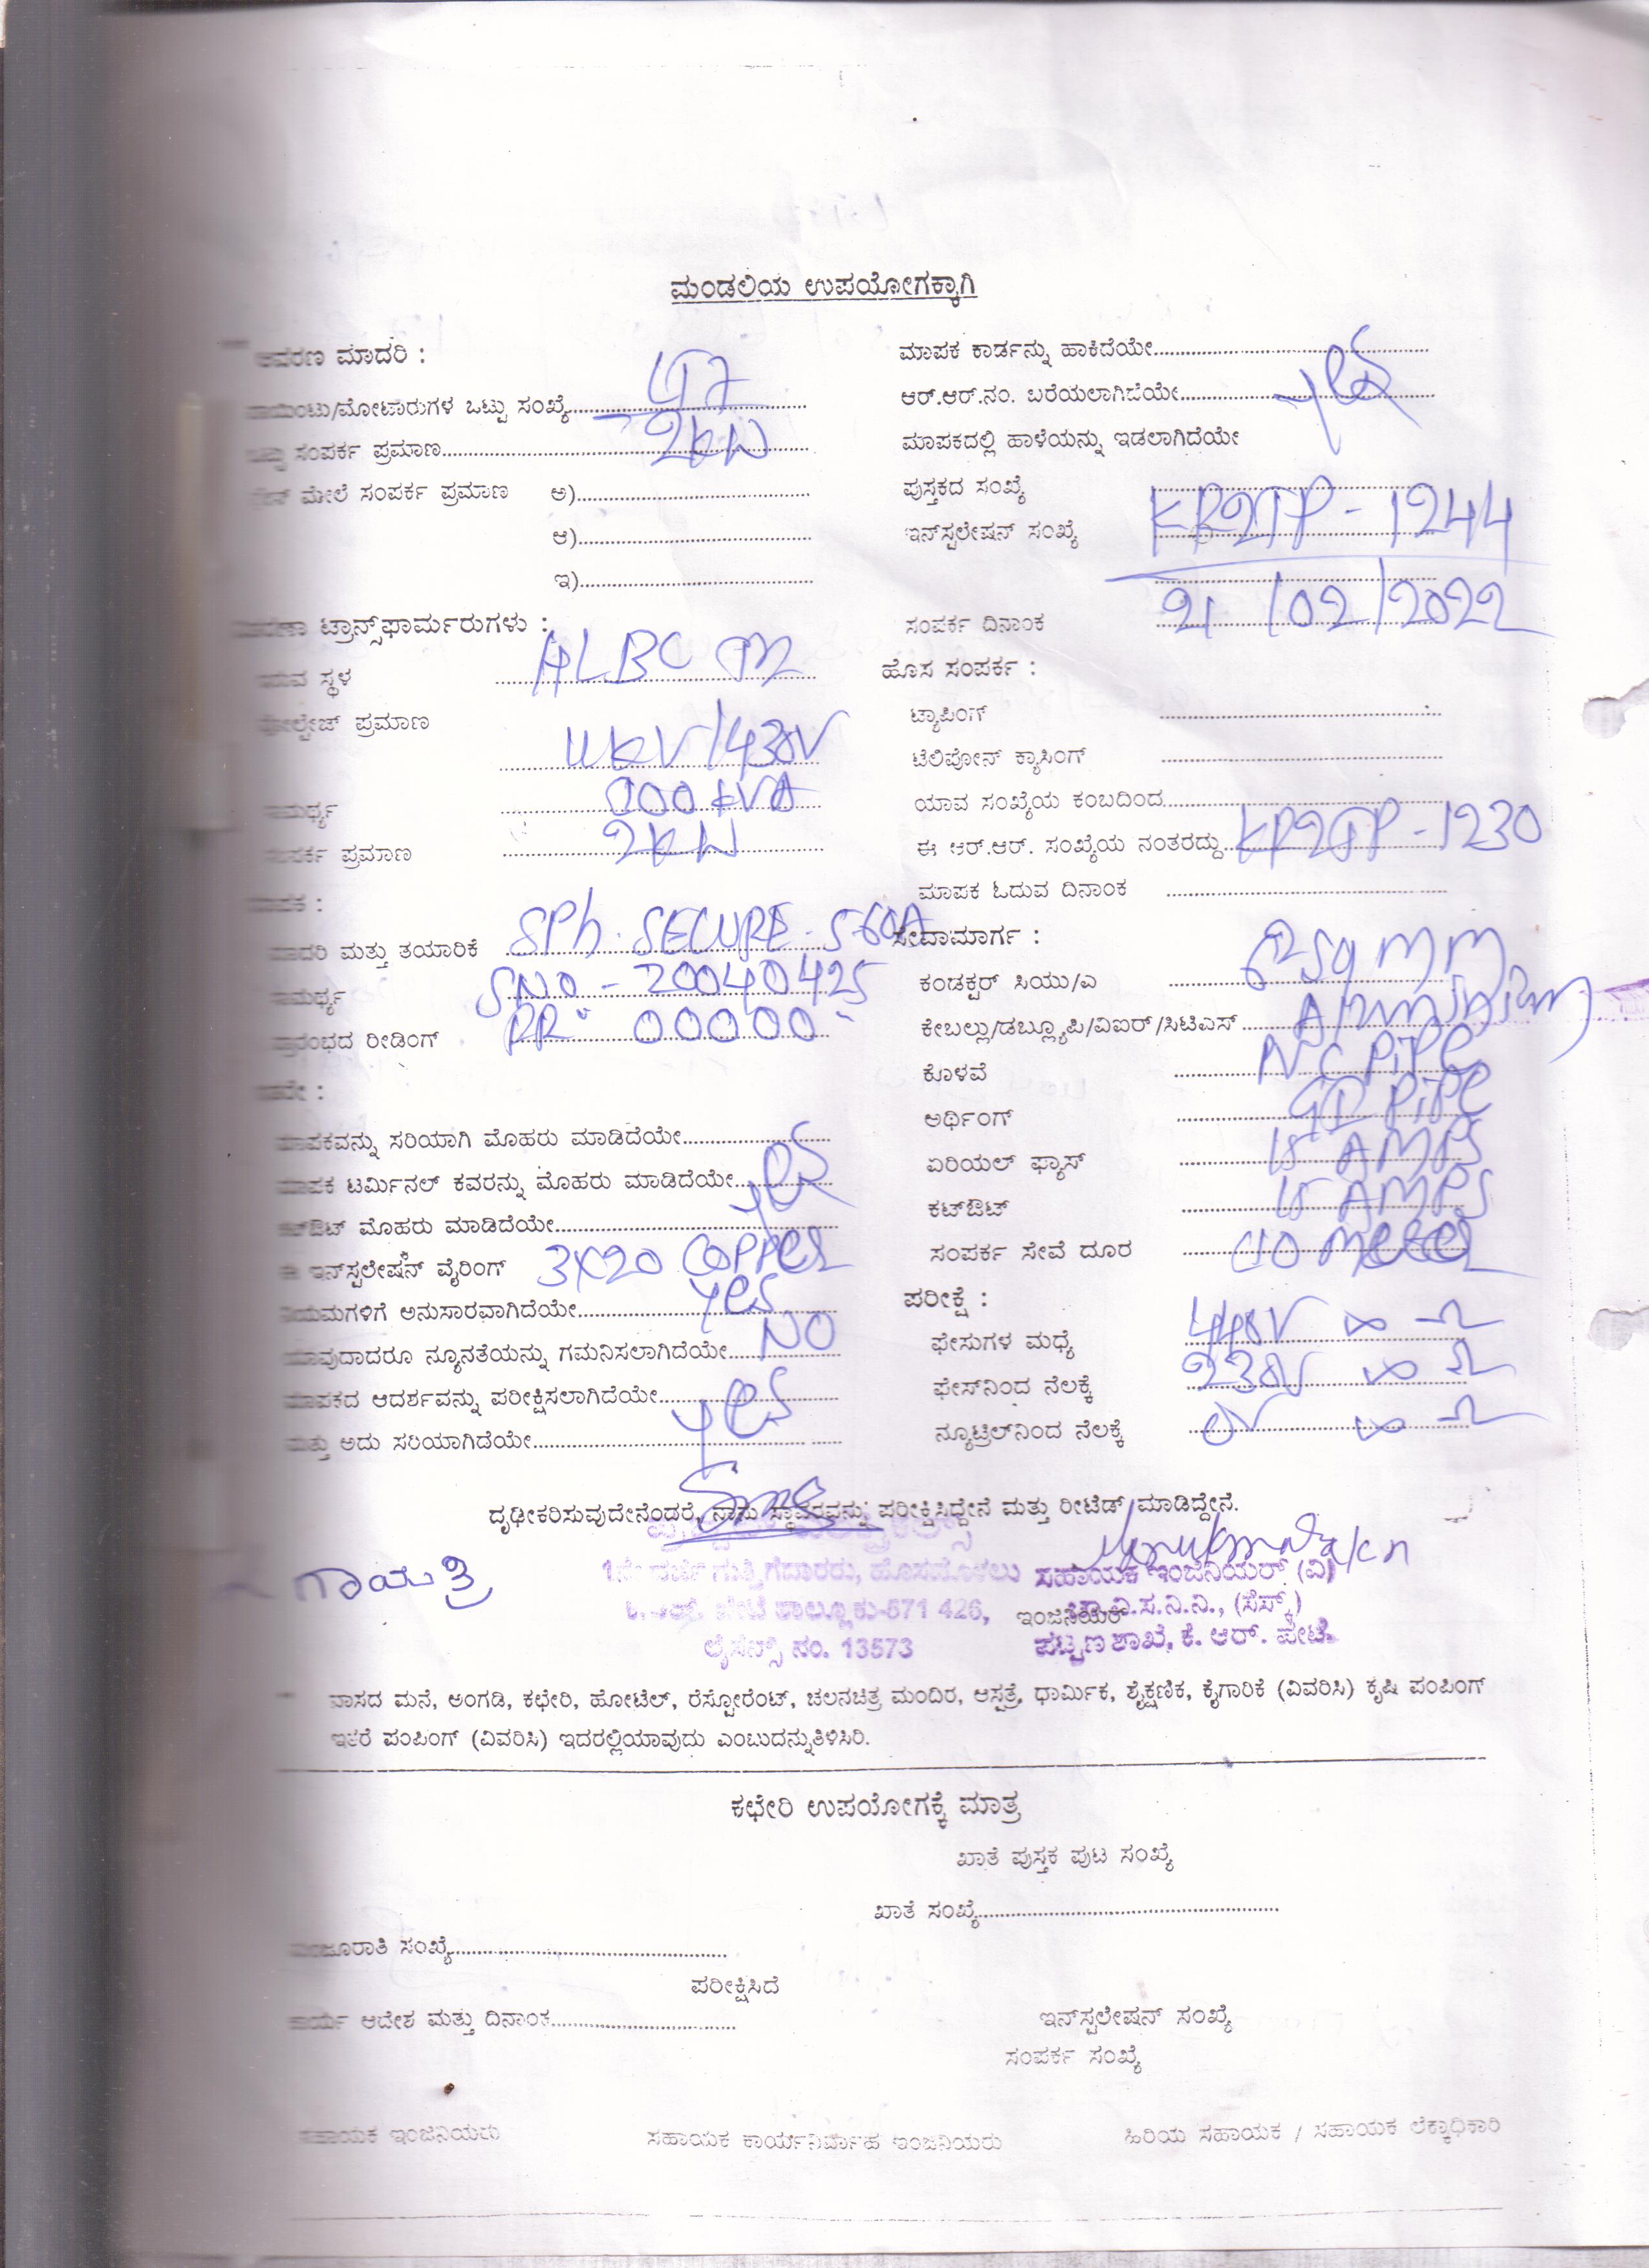 ಮಂಡಲಿಯ ಉಪಯೋಗಕ್ಕಾಗಿ
ಆವರಣ ಮಾದರಿ :
ಪಾಯಿಂಟು/ಮೋಟಾರುಗಳ ಒಟ್ಟು ಸಂಖ್ಯೆ
ಒಟ್ಟು ಸಂಪರ್ಕ ಪ್ರಮಾಣ 2kW
ಮೇಲೆ ಸಂಪರ್ಕ ಪ್ರಮಾಣ ಅ)
ಆ)
ಇ)
ಟ್ರಾನ್ಸ್‌ಫಾರ್ಮರುಗಳು :
ಇರುವ ಸ್ಥಳ HLBC
ವೋಲ್ಟೇಜ್ ಪ್ರಮಾಣ 11kV/430V
ಸಾಮರ್ಥ್ಯ 100 kVA
ಸಂಪರ್ಕ ಪ್ರಮಾಣ 2kW
ಮಾಪಕ :
ಮಾದರಿ ಮತ್ತು ತಯಾರಿಕೆ SPh. SECURE - 5-60A
ಸಾಮರ್ಥ್ಯ SNO - 20040425
ಪ್ರಾರಂಭದ ರೀಡಿಂಗ್ RR 00000
ಮಾಪಕವನ್ನು ಸರಿಯಾಗಿ ಮೊಹರು ಮಾಡಿದೆಯೇ
ಮಾಪಕ ಟರ್ಮಿನಲ್ ಕವರನ್ನು ಮೊಹರು ಮಾಡಿದೆಯೇ yes
ಕಟ್‌ಔಟ್ ಮೊಹರು ಮಾಡಿದೆಯೇ
ಈ ಇನ್‌ಸ್ಟಲೇಷನ್ ವೈರಿಂಗ್ 3x20 COPPER
ನಿಯಮಗಳಿಗೆ ಅನುಸಾರವಾಗಿದೆಯೇ yes
ಯಾವುದಾದರೂ ನ್ಯೂನತೆಯನ್ನು ಗಮನಿಸಲಾಗಿದೆಯೇ NO
ಮಾಪಕದ ಆದರ್ಶವನ್ನು ಪರೀಕ್ಷಿಸಲಾಗಿದೆಯೇ yes
ಮತ್ತು ಅದು ಸರಿಯಾಗಿದೆಯೇ
ಮಾಪಕ ಕಾರ್ಡನ್ನು ಹಾಕಿದೆಯೇ
ಆರ್.ಆರ್.ನಂ. ಬರೆಯಲಾಗಿದೆಯೇ yes
ಮಾಪಕದಲ್ಲಿ ಹಾಳೆಯನ್ನು ಇಡಲಾಗಿದೆಯೇ
ಪುಸ್ತಕದ ಸಂಖ್ಯೆ
ಇನ್‌ಸ್ಟಲೇಷನ್ ಸಂಖ್ಯೆ KP2TP - 1244
ಸಂಪರ್ಕ ದಿನಾಂಕ 21/02/2022
ಹೊಸ ಸಂಪರ್ಕ :
ಟ್ಯಾಪಿಂಗ್
ಟೆಲಿಫೋನ್ ಕ್ಯಾಸಿಂಗ್
ಯಾವ ಸಂಖ್ಯೆಯ ಕಂಬದಿಂದ
ಈ ಆರ್.ಆರ್. ಸಂಖ್ಯೆಯ ನಂತರದ್ದು KP2TP - 1230
ಮಾಪಕ ಓದುವ ದಿನಾಂಕ
ಸೇವಾಮಾರ್ಗ :
ಕಂಡಕ್ಟರ್ ಸಿಯು/ಎ sq mm
ಕೇಬಲ್ಲು/ಡಬ್ಲ್ಯೂಪಿ/ವಿಐರ್/ಸಿಟಿಎಸ್ Aluminium
ಕೊಳವೆ PiPe
ಅರ್ಥಿಂಗ್ GI PiPe
ಏರಿಯಲ್ ಫ್ಯೂಸ್ 15 AMPS
ಕಟ್‌ಔಟ್ 15 AMPS
ಸಂಪರ್ಕ ಸೇವೆ ದೂರ meter
ಪರೀಕ್ಷೆ :
ಫೇಸುಗಳ ಮಧ್ಯೆ 440V ∞ Ω
ಫೇಸ್‌ನಿಂದ ನೆಲಕ್ಕೆ 230V ∞ Ω
ನ್ಯೂಟ್ರಲ್‌ನಿಂದ ನೆಲಕ್ಕೆ 0V ∞ Ω
ದೃಢೀಕರಿಸುವುದೇನೆಂದರೆ, ನಾನು ಸ್ಥಾವರವನ್ನು ಪರೀಕ್ಷಿಸಿದ್ದೇನೆ ಮತ್ತು ರೀಟೆಡ್ ಮಾಡಿದ್ದೇನೆ.
ಗಾಯತ್ರಿ
1ನೇ ದರ್ಜೆ ಗುತ್ತಿಗೆದಾರರು, ಹೊಸಹೊಳಲು
ಕೆ.ಆರ್. ಪೇಟೆ ತಾಲ್ಲೂಕು-571 426,
ಲೈಸೆನ್ಸ್ ನಂ. 13573
ಸಹಾಯಕ ಇಂಜಿನಿಯರ್ (ವಿ)
ಇಂಜಿನಿಯರ್
ಚಾ.ವಿ.ಸ.ನಿ.ನಿ., (ಸೆಸ್ಕ್)
ಪಟ್ಟಣ ಶಾಖೆ, ಕೆ. ಆರ್. ಪೇಟೆ.
ವಾಸದ ಮನೆ, ಅಂಗಡಿ, ಕಛೇರಿ, ಹೋಟೆಲ್, ರೆಸ್ಟೋರೆಂಟ್, ಚಲನಚಿತ್ರ ಮಂದಿರ, ಆಸ್ಪತ್ರೆ, ಧಾರ್ಮಿಕ, ಶೈಕ್ಷಣಿಕ, ಕೈಗಾರಿಕೆ (ವಿವರಿಸಿ) ಕೃಷಿ ಪಂಪಿಂಗ್
ಇತರೆ ಪಂಪಿಂಗ್ (ವಿವರಿಸಿ) ಇದರಲ್ಲಿಯಾವುದು ಎಂಬುದನ್ನುತಿಳಿಸಿರಿ.
ಕಛೇರಿ ಉಪಯೋಗಕ್ಕೆ ಮಾತ್ರ
ಖಾತೆ ಪುಸ್ತಕ ಪುಟ ಸಂಖ್ಯೆ
ಖಾತೆ ಸಂಖ್ಯೆ
ಮಂಜೂರಾತಿ ಸಂಖ್ಯೆ
ಪರೀಕ್ಷಿಸಿದೆ
ಕಾರ್ಯ ಆದೇಶ ಮತ್ತು ದಿನಾಂಕ
ಇನ್‌ಸ್ಟಲೇಷನ್ ಸಂಖ್ಯೆ
ಸಂಪರ್ಕ ಸಂಖ್ಯೆ
ಸಹಾಯಕ ಇಂಜಿನಿಯರು ಸಹಾಯಕ ಕಾರ್ಯನಿರ್ವಾಹ ಇಂಜಿನಿಯರು ಹಿರಿಯ ಸಹಾಯಕ / ಸಹಾಯಕ ಲೆಕ್ಕಾಧಿಕಾರಿ